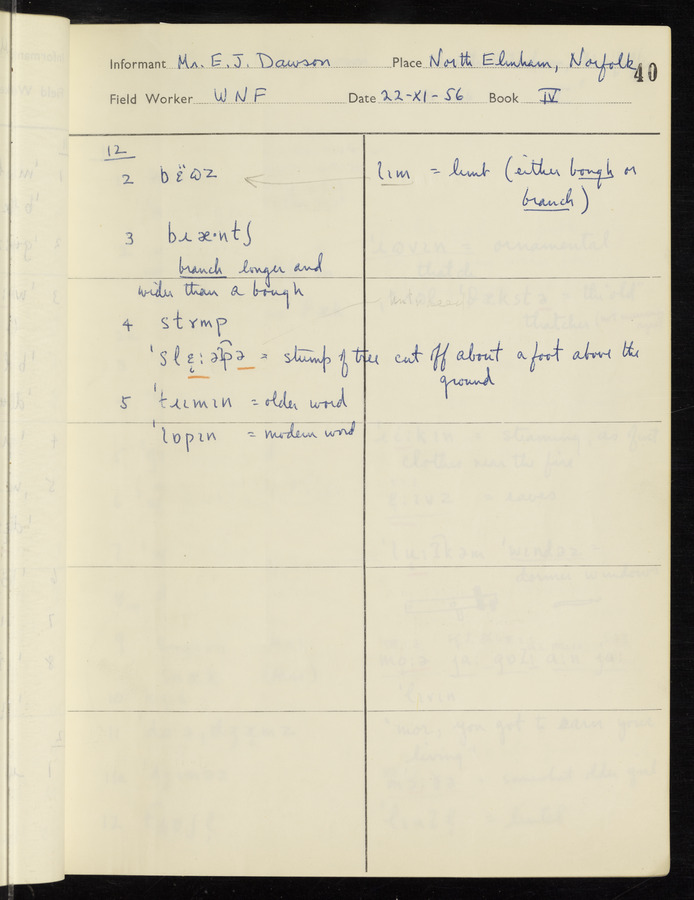 Informant Mr. E. J. Dawson Place North Elmham, Norfolk 40
Field Worker WNF Date 22-XI-56 Book IV
12
2 bɛ̈ɷz
lɪm = limb (either bough or
branch)
3 bɹæ·ntʃ
branch longer and
wider than a bough
4 stɤmp
= stump of tree cut off about a foot above the
ground
5 'tɹɪmɪn = older word
'lɒpɪn = modern word